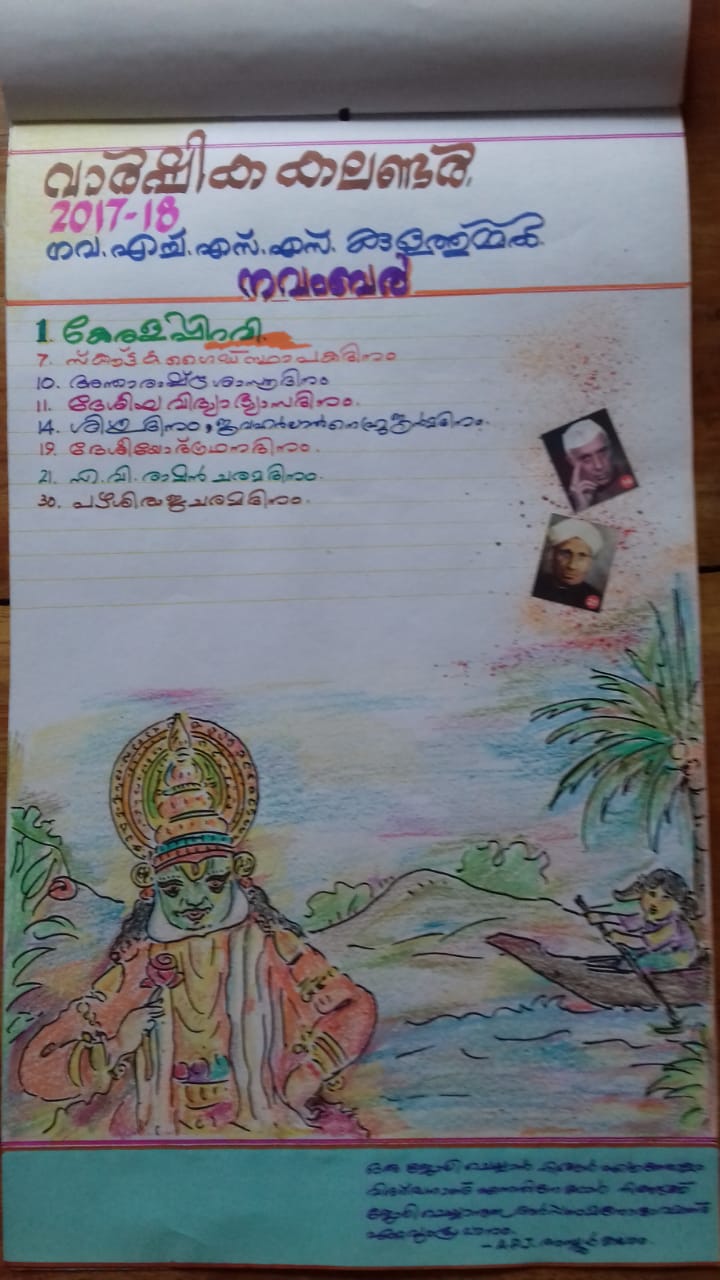 വാർഷിക കലണ്ടർ.
2017-18
ഗവ.എച്ച്.എസ്.എസ്. കുളത്തുമ്മൽ.
നവംബർ
1. കേരളപ്പിറവി.
7. സ്കൗട്ട് & ഗൈഡ് സ്ഥാപകദിനം
10. അന്താരാഷ്ട്ര ശാസ്ത്രദിനം
11. ദേശീയ വിദ്യാഭ്യാസദിനം.
14. ശിശുദിനം, ജവഹർലാൽ നെഹ്റു ജന്മദിനം.
19. ദേശീയോദ്ഗ്രഥനദിനം.
21. സി.വി. രാമൻ ചരമദിനം.
30. പഴശ്ശിരാജ ചരമദിനം.
ഒരു ജോലി ചെയ്യാൻ നിങ്ങൾ
ജോലി
- എ.പി.ജെ. അബ്ദുൾ കലാം.